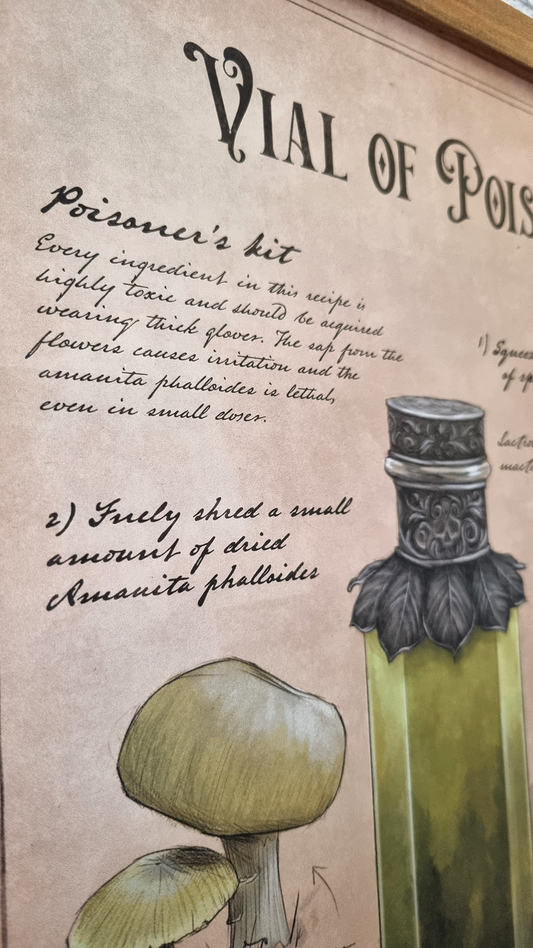 VIAL OF POIS
Poisoner's kit
Every ingredient in this recipe is
highly toxic and should be acquired
wearing thick gloves. The sap from the
flowers causes irritation and the
amanita phalloides is lethal,
even in small doses.
1) Squeez
of sp
Lactu
2) Finely shred a small
amount of dried
Amanita phalloides